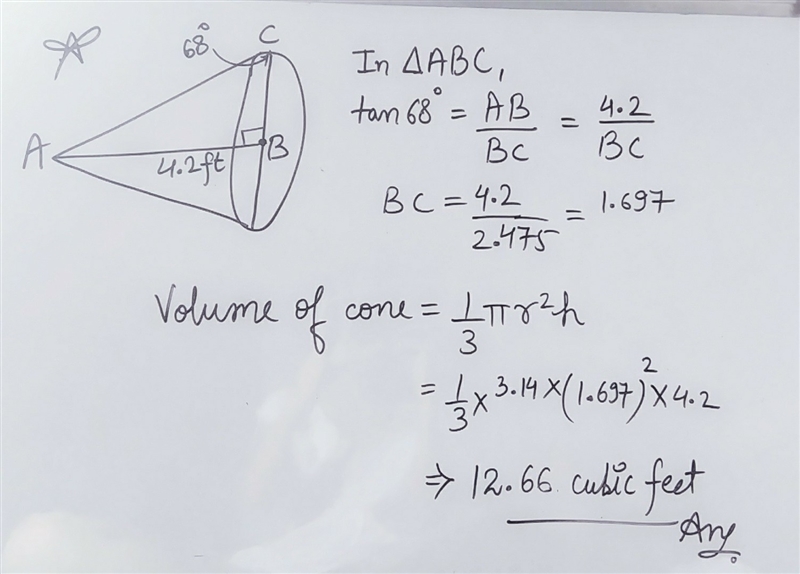 68°
C
A
B
4.2ft
In ΔABC,
tan 68° = AB/BC = 4.2/BC
BC = 4.2/2.475 = 1.697
Volume of cone = 1/3 πr²h
= 1/3 × 3.14 × (1.697)² × 4.2
⇒ 12.66 cubic feet
Ans.